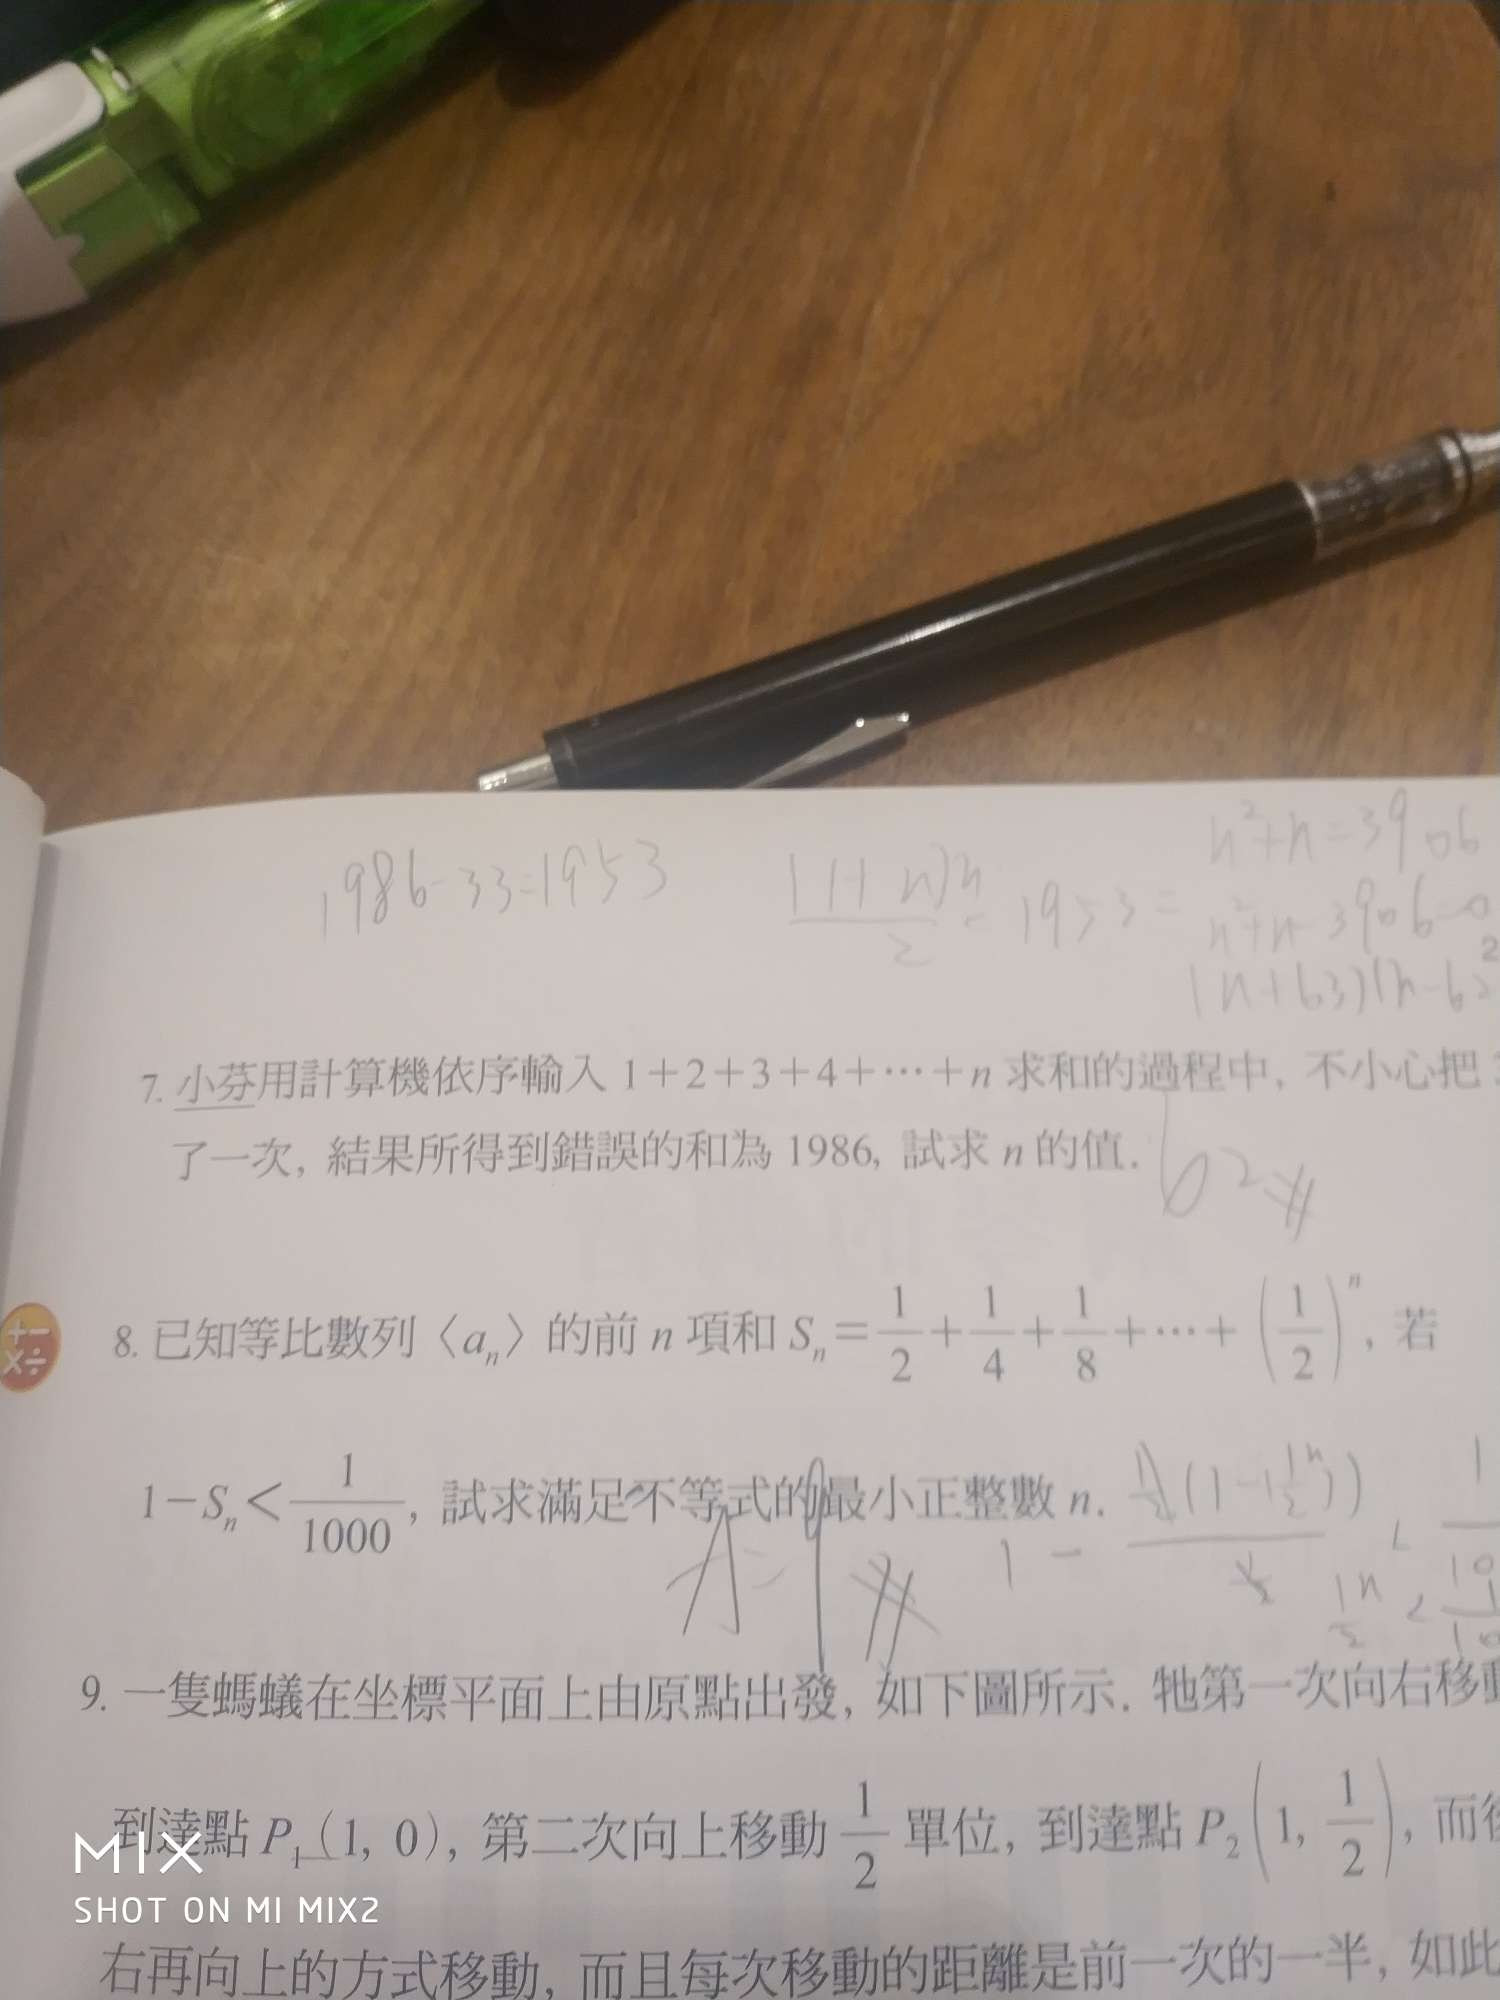 1986-33=1953
(1+n)n/2=1953=
n²+n=3906
n²+n-3906=0
(n+63)(n-62
7. 小芬用計算機依序輸入 1+2+3+4+⋯+n 求和的過程中, 不小心把
了一次, 結果所得到錯誤的和為 1986, 試求 n 的值.
62
8. 已知等比數列〈aₙ〉的前 n 項和 Sₙ=1/2+1/4+1/8+⋯+(1/2)ⁿ, 若
1-Sₙ<1/1000, 試求滿足不等式的最小正整數 n.
9. 一隻螞蟻在坐標平面上由原點出發, 如下圖所示. 牠第一次向右移動
到達點 P₁(1, 0), 第二次向上移動 1/2 單位, 到達點 P₂(1, 1/2), 而後
右再向上的方式移動, 而且每次移動的距離是前一次的一半, 如此
MIX
SHOT ON MI MIX2